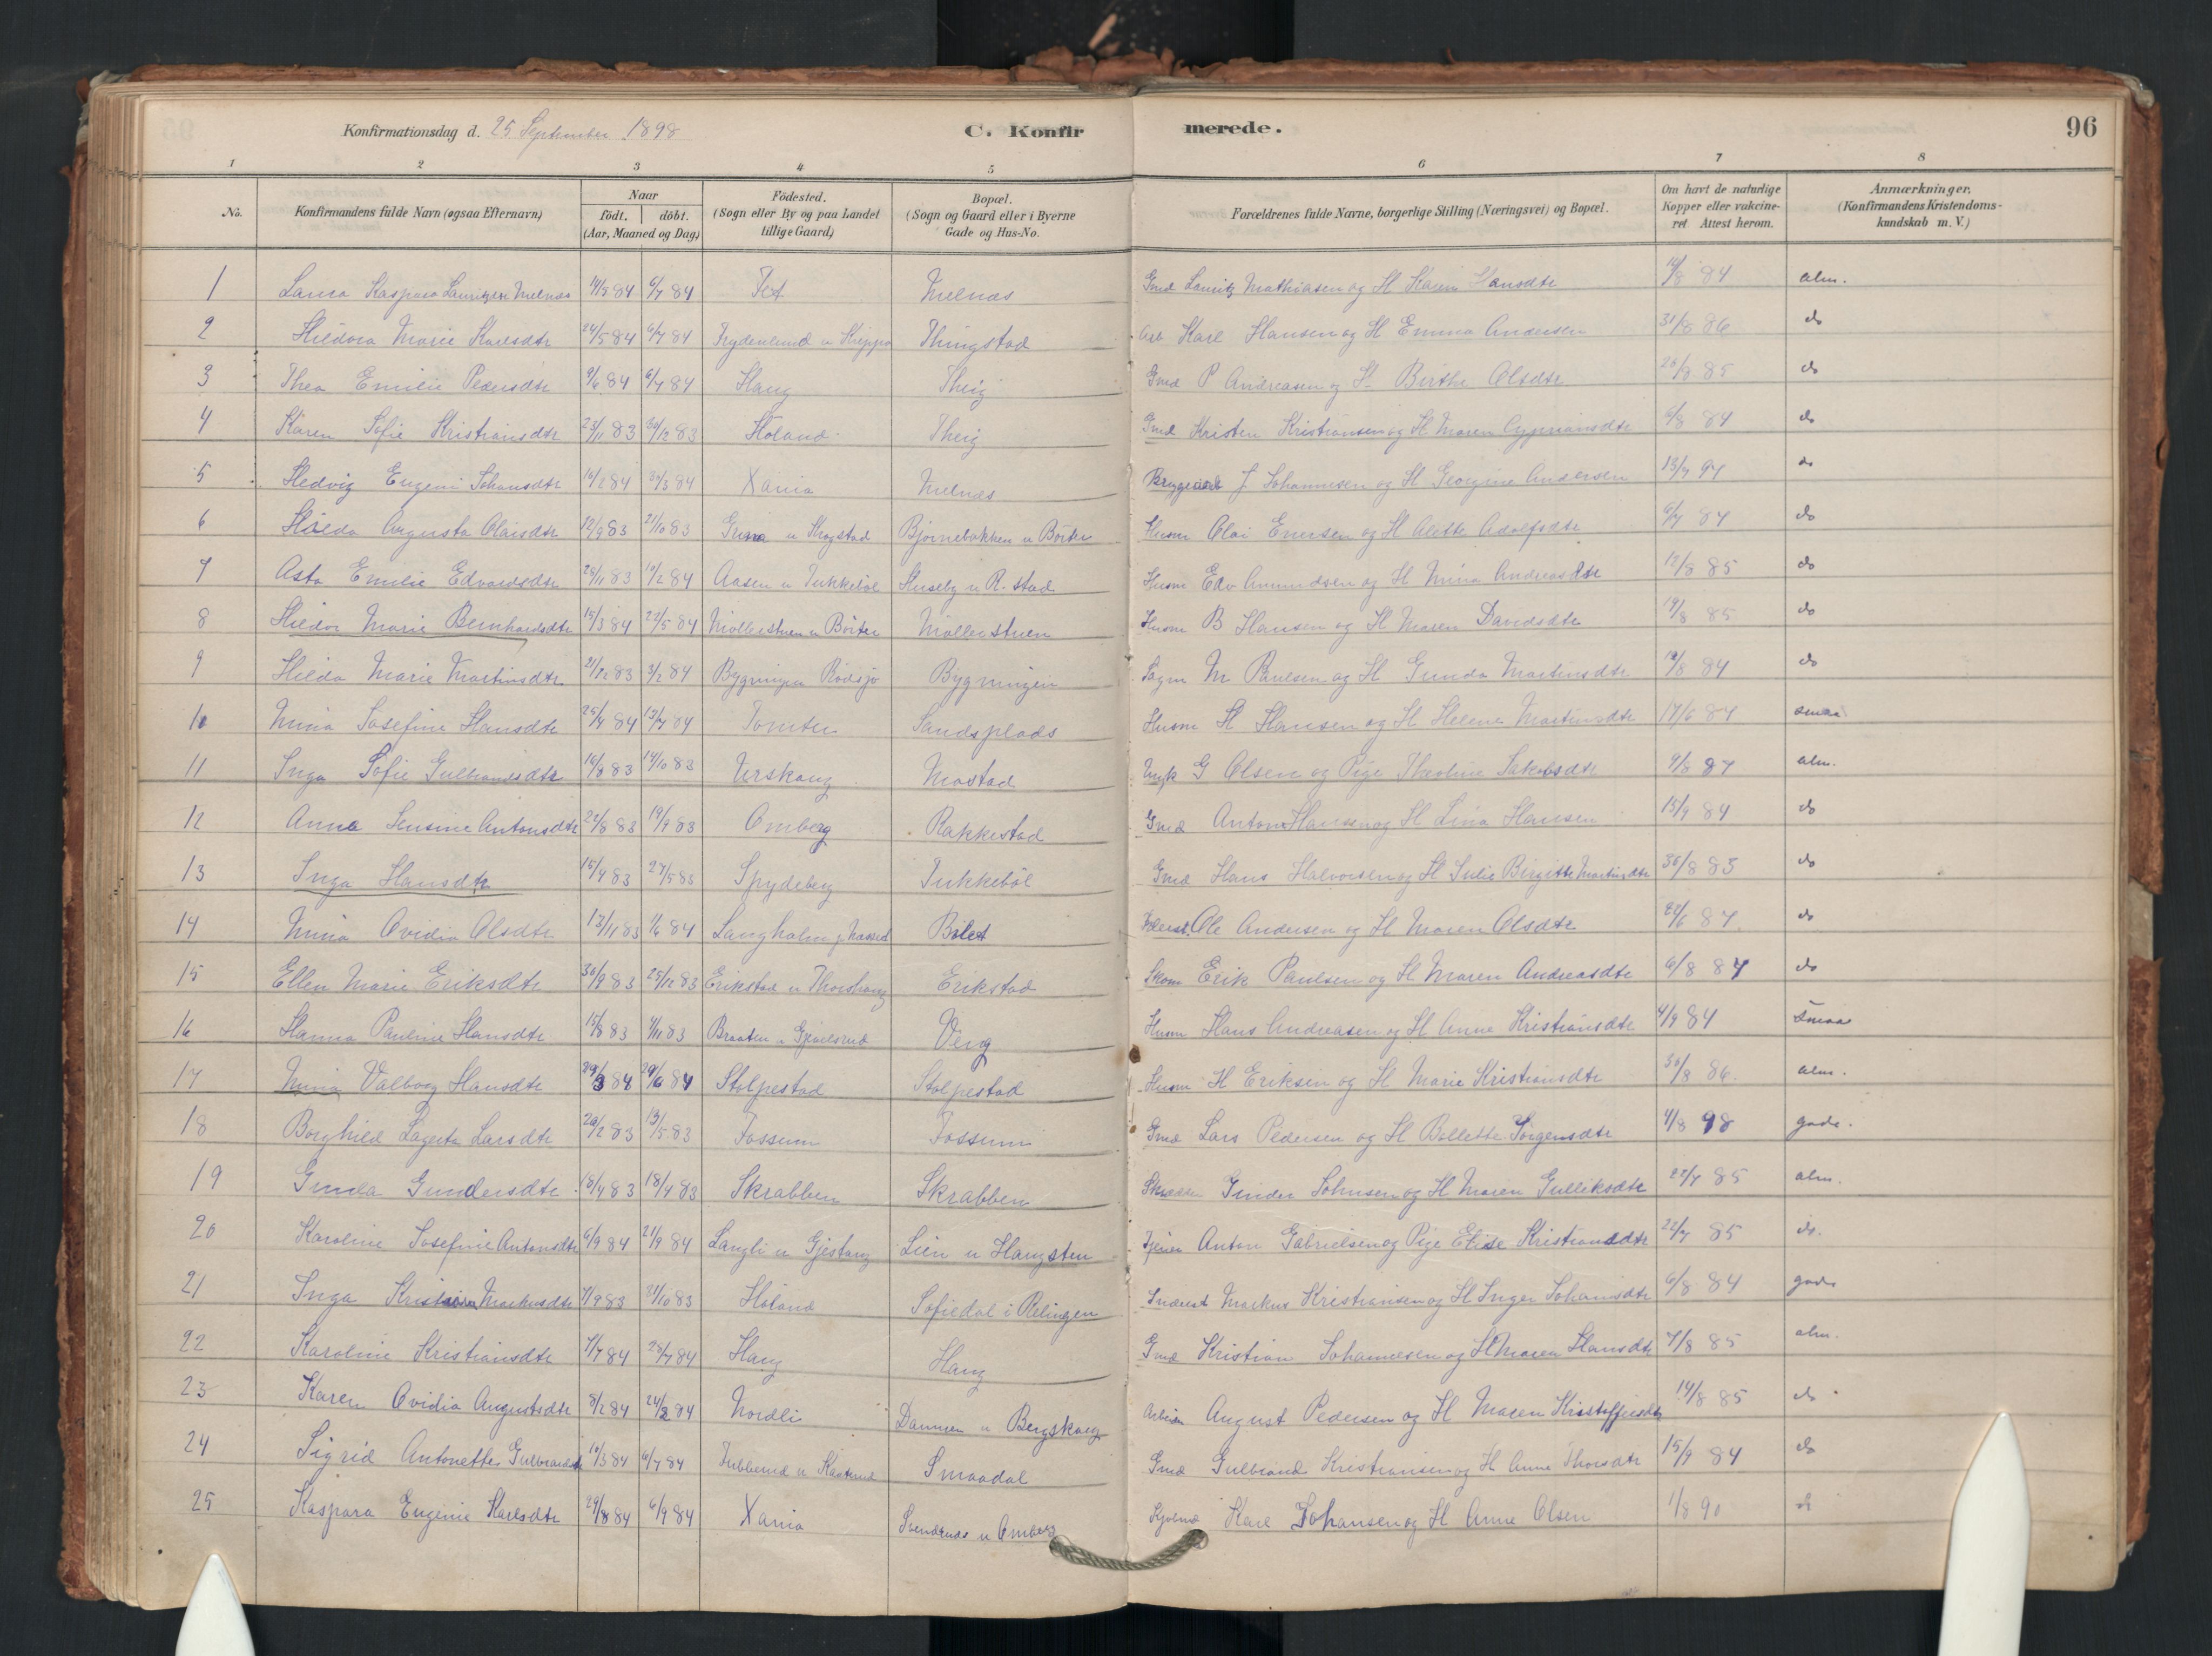 Konfirmationsdag d. 25 September 1898 C. Konfirmerede. 96
1 2 3 4 5 6 7 8
No. Konfirmandens fulde Navn (ogsaa Efternavn) Naar født. døbt. (Aar, Maaned og Dag) Födested. (Sogn eller By og paa Landet tillige Gaard) Bopæl. (Sogn og Gaard eller i Byerne Gade og Hus-No. Forældrenes fulde Navne, borgerlige Stilling (Næringsvei) og Bopæl. Om havt de naturlige Kopper eller vakcineret Attest herom. Anmærkninger. (Konfirmandens Kristendomskundskab m. V.)
1 Laura Kaspara Lauritzdtr 84 6/7 84 Gmd Lauritz Mathiasen og H Karen Hansdtr 84 alm.
2 Hildora Marie Karlsdtr 24/5 84 6/7 84 Frydenlund u Thingstad Arb Karl Hansen og H Emma Andersen 31/8 86 do
3 Thea Emilie Pedersdtr 9/6 84 6/7 84 Haug Theig Gmd P Andreasen og H Birthe Olsdtr 85 do
4 Karen Sofie Kristiansdtr 23/11 83 30/12 83 Høland Theig Gmd Kristen Kristiansen og H Maren Cypriansdtr 6/8 84 do
5 Hedvig Eugeni Johansdtr 16/2 84 30/3 84 Xania J Johannesen og H Georgine Andersen 13/7 97 do
6 Hilda Augusta Olaisdtr 12/9 83 21/10 83 u Skogstad Bjørnebakken u Börter Husm Olai Enersen og H Alette Adolfsdtr 84 do
7 Asta Emilie Edvardsdtr 28/11 83 10/2 84 Aasen u Tukkebøl Huseby u R.stad Husm Edv Amundsen og H Mina Andreasdtr 12/8 85 do
8 Hilda Marie Bernhardsdtr 15/3 84 22/5 84 Möllerstuen u Börter Möllerstuen Husm B Hansen og H Maren Davidsdtr 19/8 85 do
9 Hilda Marie Martinsdtr 21/12 83 3/2 84 Bygningen Rødsjø Bygningen Sagm M Paulsen og H Gunda Martinsdtr 84 do
10 Mina Josefine Hansdtr 25/4 84 13/7 84 Tomter Sandsplads Husm H Hansen og H Helene Martinsdtr 17/6 87 smaa
11 Inga Sofie Gulbrandsdtr 16/8 83 14/10 83 Urskoug Mastad Ungk G Olsen og Pige Theoline Jakobsdtr 9/8 87 alm.
12 Anna Jensine Antonsdtr 22/8 83 19/9 83 Omberg Rakkestad Gmd Anton Hansen og H Lina Hansen 15/9 84 do
13 Inga Hansdtr 15/4 83 27/5 83 Spydeberg Tukkebøl Gmd Hans Halvorsen og H Julie Birgitte Martinsdtr 30/8 83 do
14 Mina Ovidia Olsdtr 13/11 83 1/6 84 Langholm Bilet Ole Andersen og H Maren Olsdtr 84 do
15 Ellen Marie Eriksdtr 30/9 83 25/12 83 Erikstad u Thorshaug Erikstad Skom Erik Paulsen og H Maren Andreasdtr 6/8 84 do
16 Hanna Pauline Hansdtr 15/8 83 4/11 83 Braaten u Gjevelsrud Veig Husm Hans Andreasen og H Anne Kristiansdtr 4/9 84 smaa
17 Mina Valborg Hansdtr 29/3 84 29/6 84 Stolpestad Stolpestad Husm H Eriksen og H Marie Kristiansdtr 30/8 86 alm.
18 Borghild Lagerta Larsdtr 20/2 83 13/5 83 Fossum Fossum Gmd Lars Pedersen og H Bollette Jörgensdtr 4/8 98 gode.
19 Gunda Gundersdtr 18/4 83 18/7 83 Skrabben Skrabben Gunder Johnsen og H Maren Gulliksdtr 22/7 85 alm.
20 Karoline Josefine Antonsdtr 6/9 84 21/9 84 Langli u Gjestang Lien u Haugsten Tjener Anton Gabrielsen og Pige Elise Kristiansdtr 22/7 85 do.
21 Inga Kristiana Markusdtr 7/9 83 21/10 83 Høland Sofiedal i Rælingen Inderst Markus Kristiansen og H Inger Johansdtr 6/8 84 gode
22 Karoline Kristiansdtr 1/7 84 28/7 84 Haug Haug Gmd Kristian Johannesen og H Maren Hansdtr 7/8 85 alm.
23 Karen Ovidia Augustsdtr 8/2 84 24/3 84 Nordli Dammen u Bergskoug Arbeider August Pedersen og H Maren Kristoffersdtr 14/8 85 do
24 Sigrid Antonette Gulbrandsdtr 10/3 84 6/7 84 Tubberud u Kasterud Smaadal Gmd Gulbrand Kristiansen og H Anne Thorsdtr 15/9 84 do
25 Kaspara Eugenie Karlsdtr 29/8 84 6/9 84 Xania u Omberg Karl Johansen og H Anne Olsen 1/8 90 do